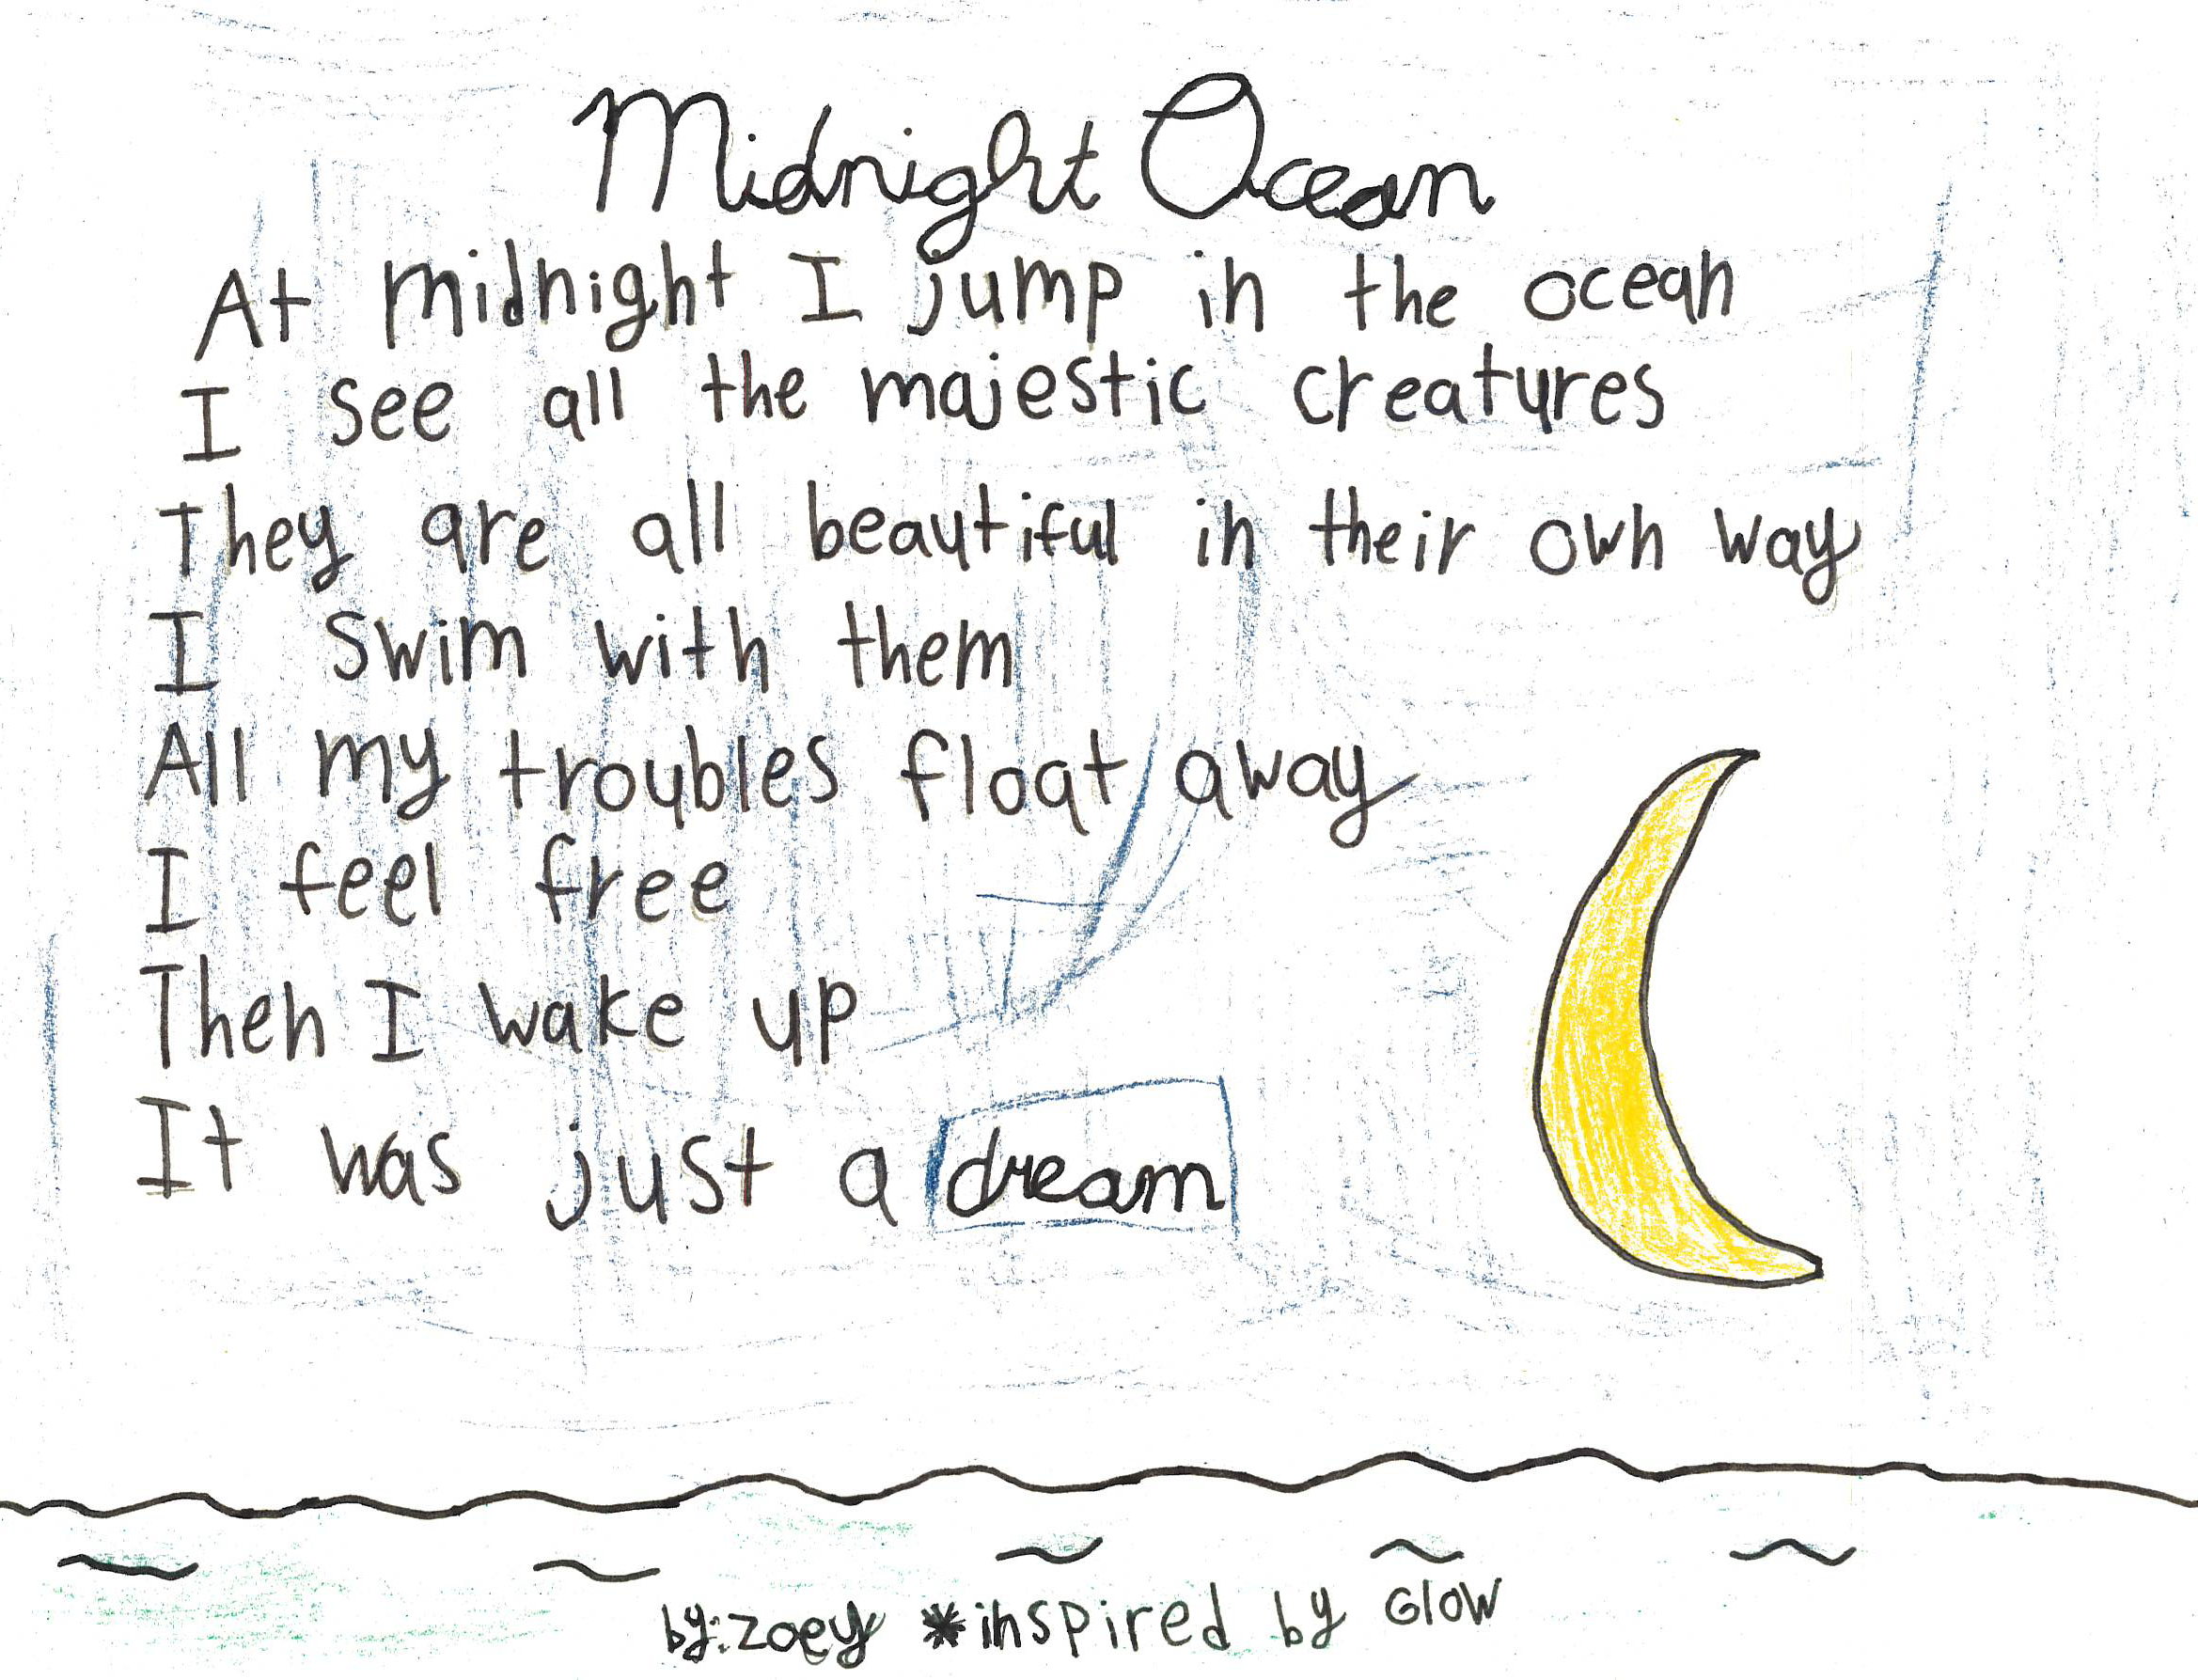 Midnight Ocean
At midnight I jump in the ocean
I see all the majestic creatures
They are all beautiful in their own way
I swim with them
All my troubles float away
I feel free
Then I wake up
It was just a dream
by: zoey *inspired by Glow